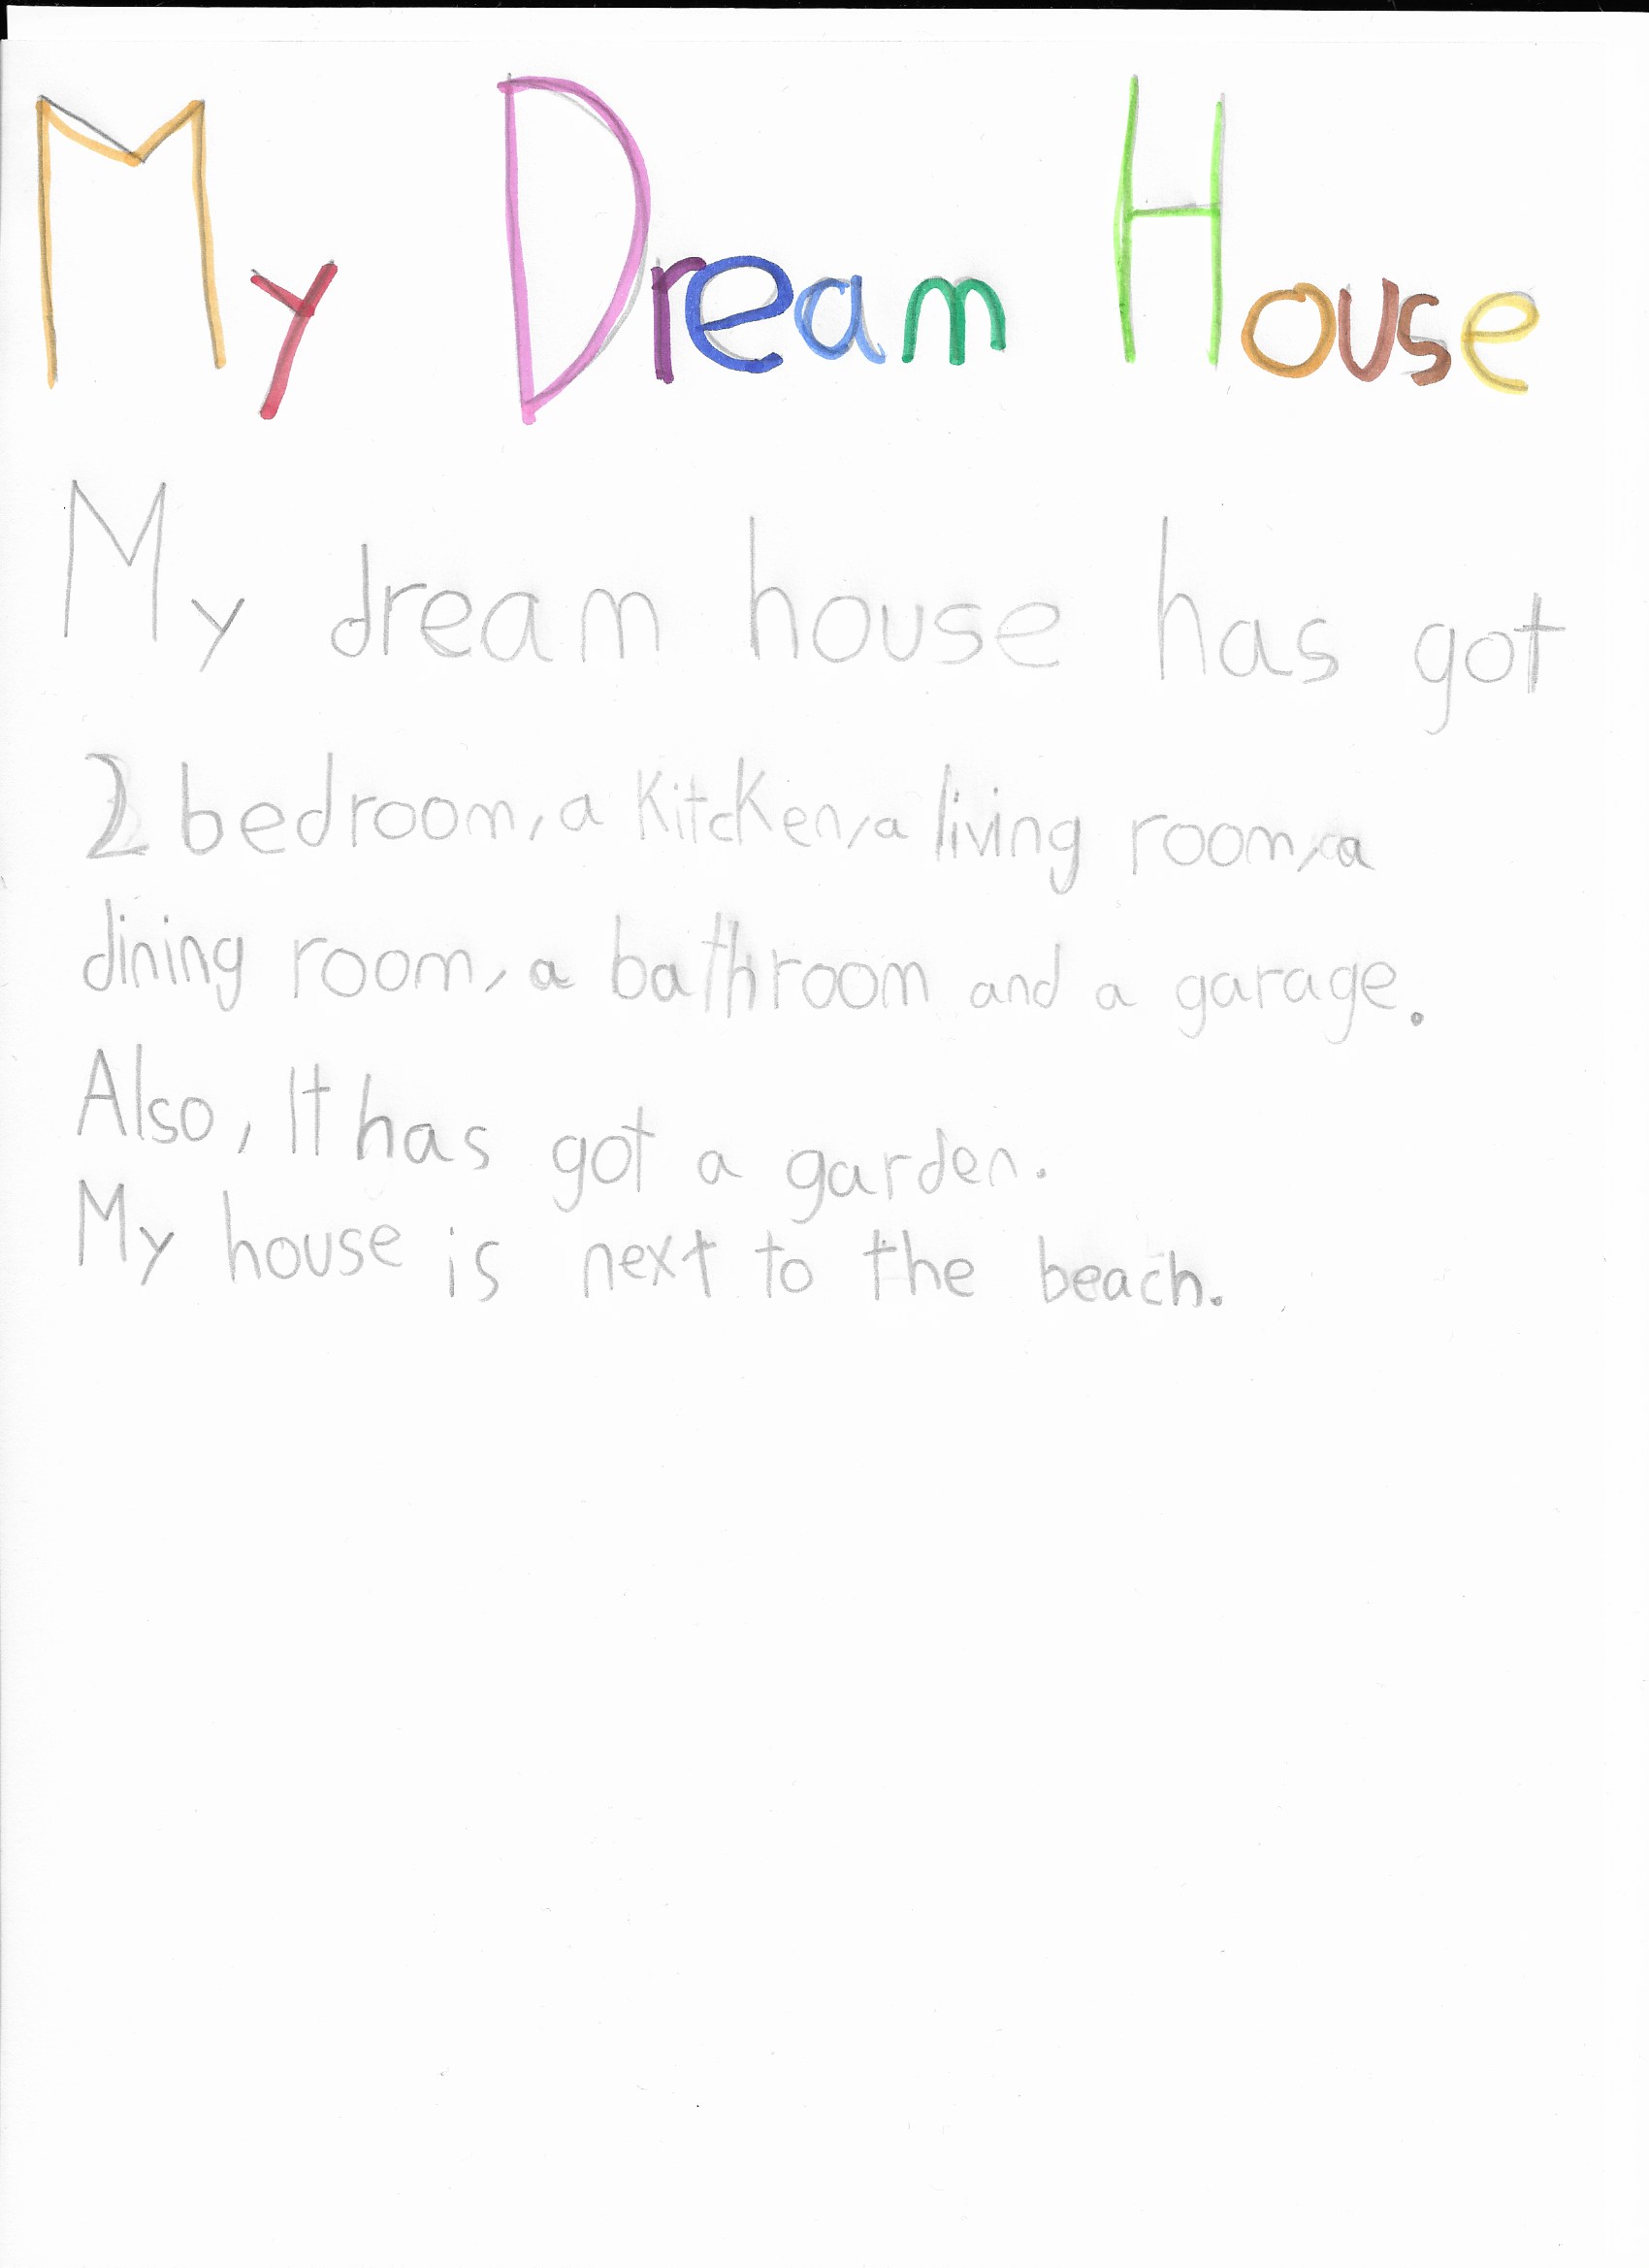 My Dream House
My dream house has got
2 bedroom, a KitcKen, a living room, a
dining room, a bathroom and a garage.
Also, It has got a garden.
My house is next to the beach.